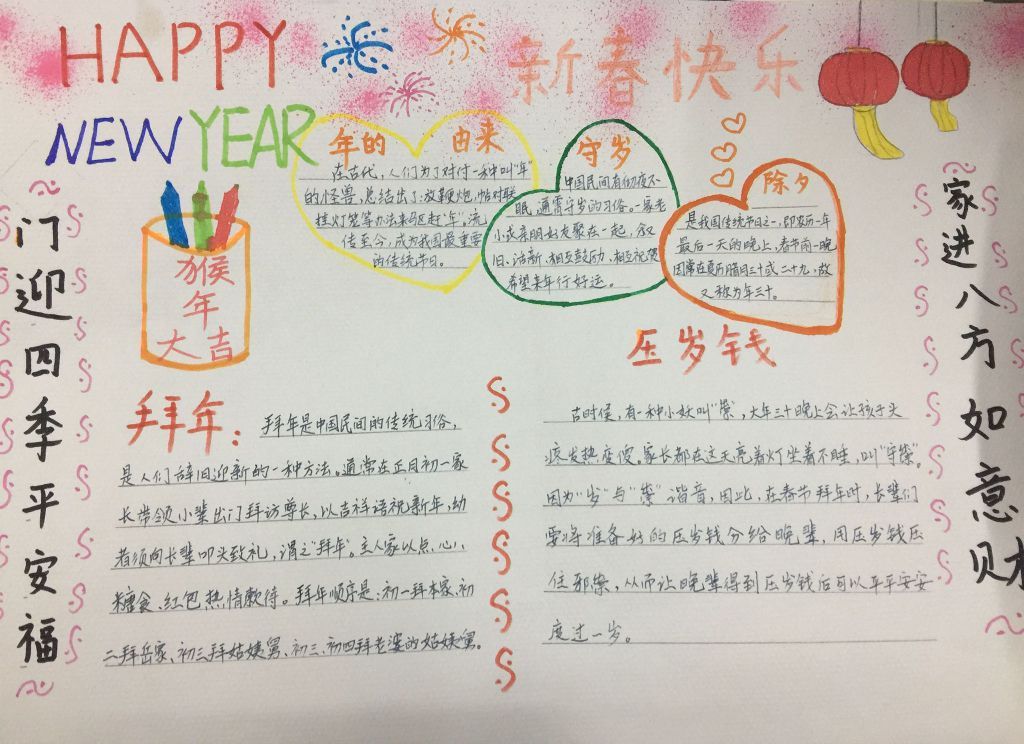 HAPPY
NEW YEAR
新春快乐
门迎四季平安福
家进八方如意财
猴
年
大吉
年的 由来
在古代,人们为了对付一种叫“年”
的怪兽,总结出了放鞭炮,帖对联
挂灯笼等办法来驱赶“年”。流
传至今,成为我国最重要
的传统节日。
守岁
中国民间有彻夜不
眠,通宵守岁的习俗。一家老
小或亲朋好友聚在一起,叙
旧、话新、相互鼓励,相互祝贺
希望来年行好运。
除夕
是我国传统节日之一,即农历一年
最后一天的晚上,春节前一晚
因常在夏历腊月三十或二十九,故
又称为年三十。
拜年:
拜年是中国民间的传统习俗,
是人们辞旧迎新的一种方法。通常在正月初一家
长带领小辈出门拜访尊长,以吉祥语祝新年,幼
者须向长辈叩头致礼,谓之“拜年”。主人家以点心、
糖食、红包热情款待。拜年顺序是:初一拜本家、初
二拜岳家、初三拜姑姨舅、初三、初四拜老婆的姑姨舅。
压岁钱
古时候,有一种小妖叫“祟”,大年三十晚上会让孩子头
疼发热变傻。家长都在这天亮着灯坐着不睡,叫“守祟”。
因为“岁”与“祟”谐音,因此,在春节拜年时,长辈们
要将准备好的压岁钱分给晚辈,用压岁钱压
住邪祟,从而让晚辈得到压岁钱后可以平平安安
度过一岁。